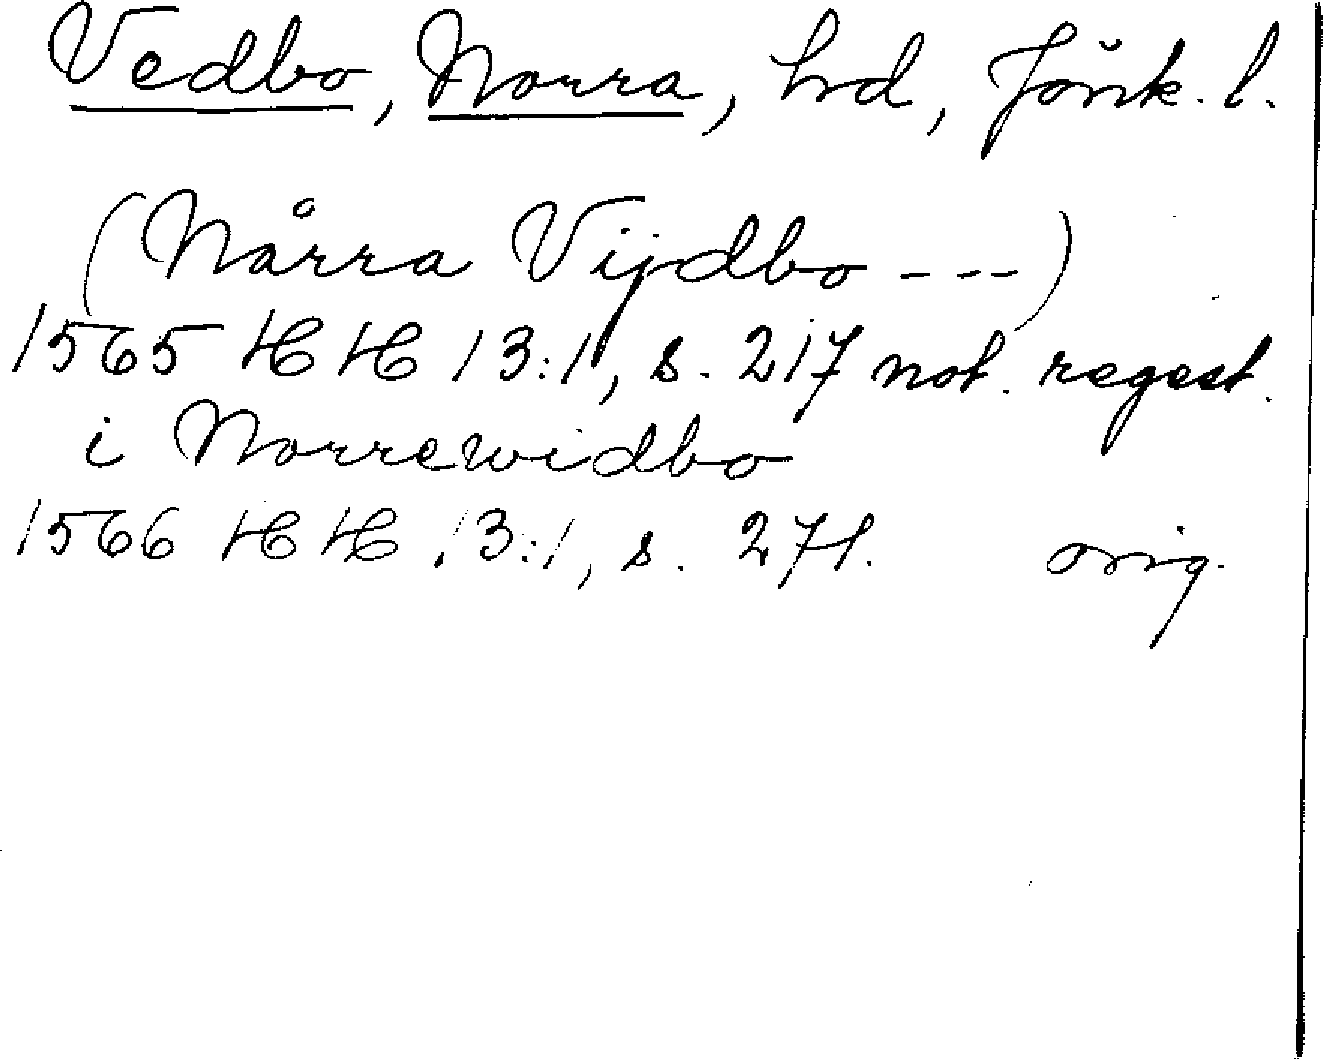 Vedbo, Norra, hd, Jönk. l.
(Nårra Vijdbo ---)
1565 HH 13:1, s. 217 not. regest.
i Norrewidbo
1566 HH 13:1, s. 271. orig.